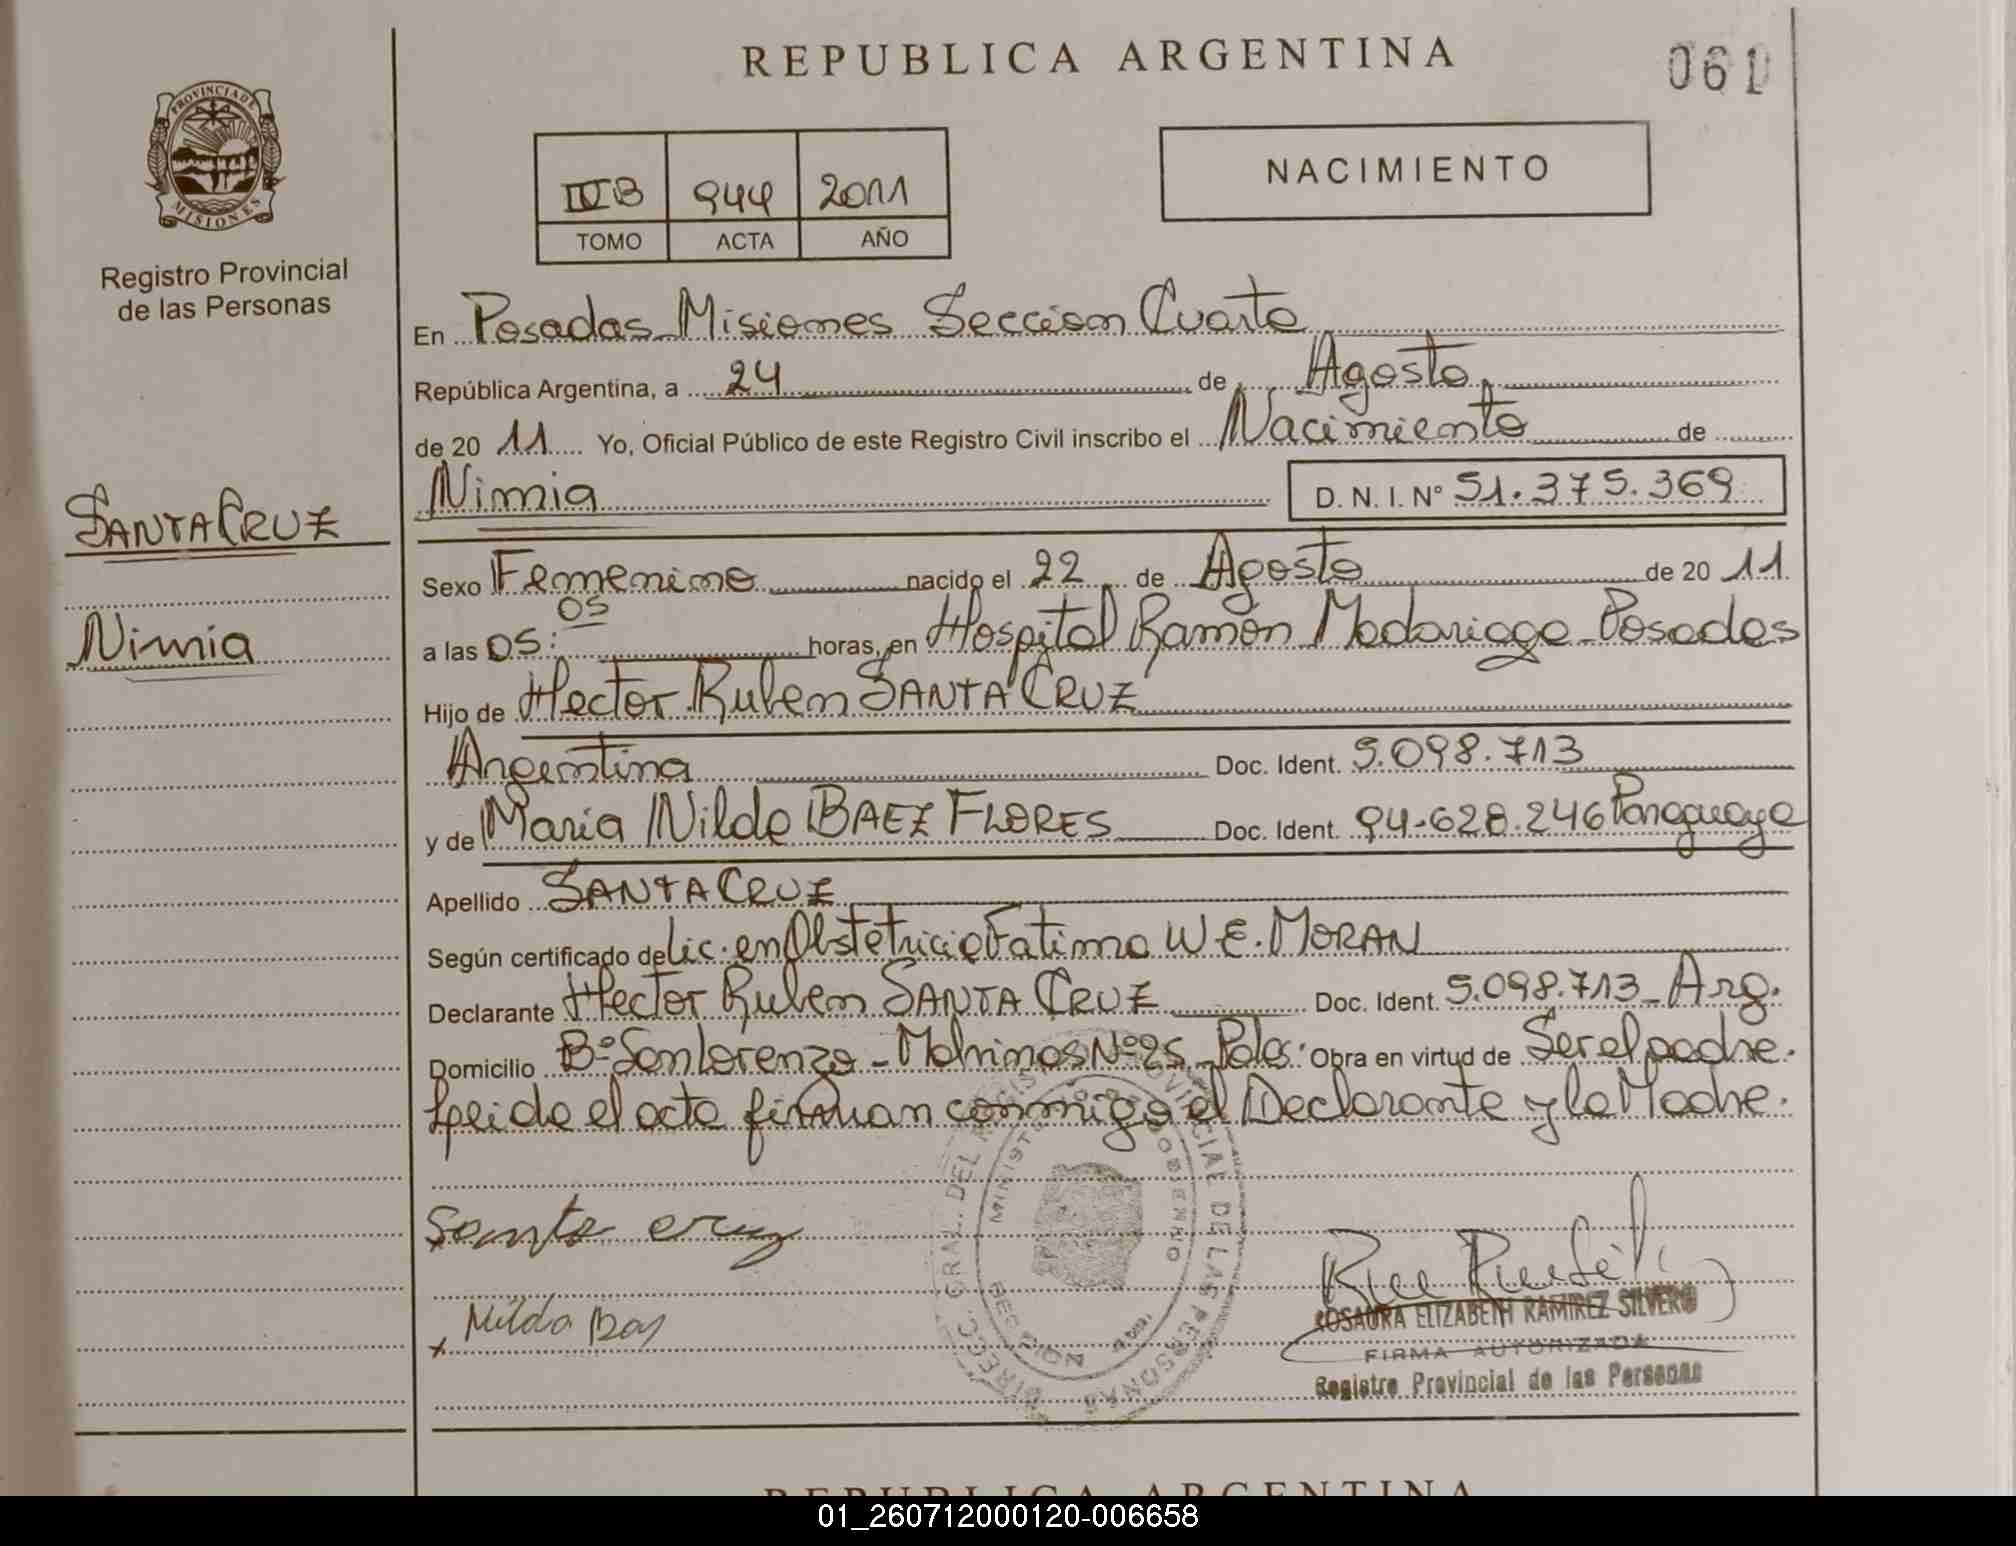 REPUBLICA ARGENTINA
061
PROVINCIA DE
MISIONES
Registro Provincial
de las Personas
IVB 944 2011
TOMO ACTA AÑO
NACIMIENTO
En Posadas Misiones Seccion Cuarta
República Argentina, a 24 de Agosto
de 20 11 Yo, Oficial Público de este Registro Civil inscribo el Nacimiento de
Nimia D. N. I. N° 51.375.369
SANTA CRUZ
Nimia
Sexo Femenino nacido el 22 de Agosto de 20 11
a las 05:05 horas, en Hospital Ramón Madariaga Posadas
Hijo de Hector Ruben SANTA CRUZ
Argentina Doc. Ident. 5.098.713
y de Maria Nilda BAEZ FLORES Doc. Ident. 94.628.246 Paraguaya
Apellido SANTA CRUZ
Según certificado de Lic. en Obstetricia Fatima W. E. MORAN
Declarante Hector Ruben SANTA CRUZ Doc. Ident. 5.098.713 Arg.
Domicilio B° San Lorenzo - Malvinas N° 25 Pdas. Obra en virtud de Ser el padre.
Leida el acta firman conmigo el Declarante y la Madre.
Santa cruz
Nilda
DIRECC. GRAL. DEL REGISTRO PROVINCIAL DE LAS PERSONAS
MINISTERIO DE GOBIERNO
ROSAURA ELIZABETH RAMIREZ SILVERO
FIRMA AUTORIZADA
Registro Provincial de las Personas
REPUBLICA ARGENTINA
01_260712000120-006658